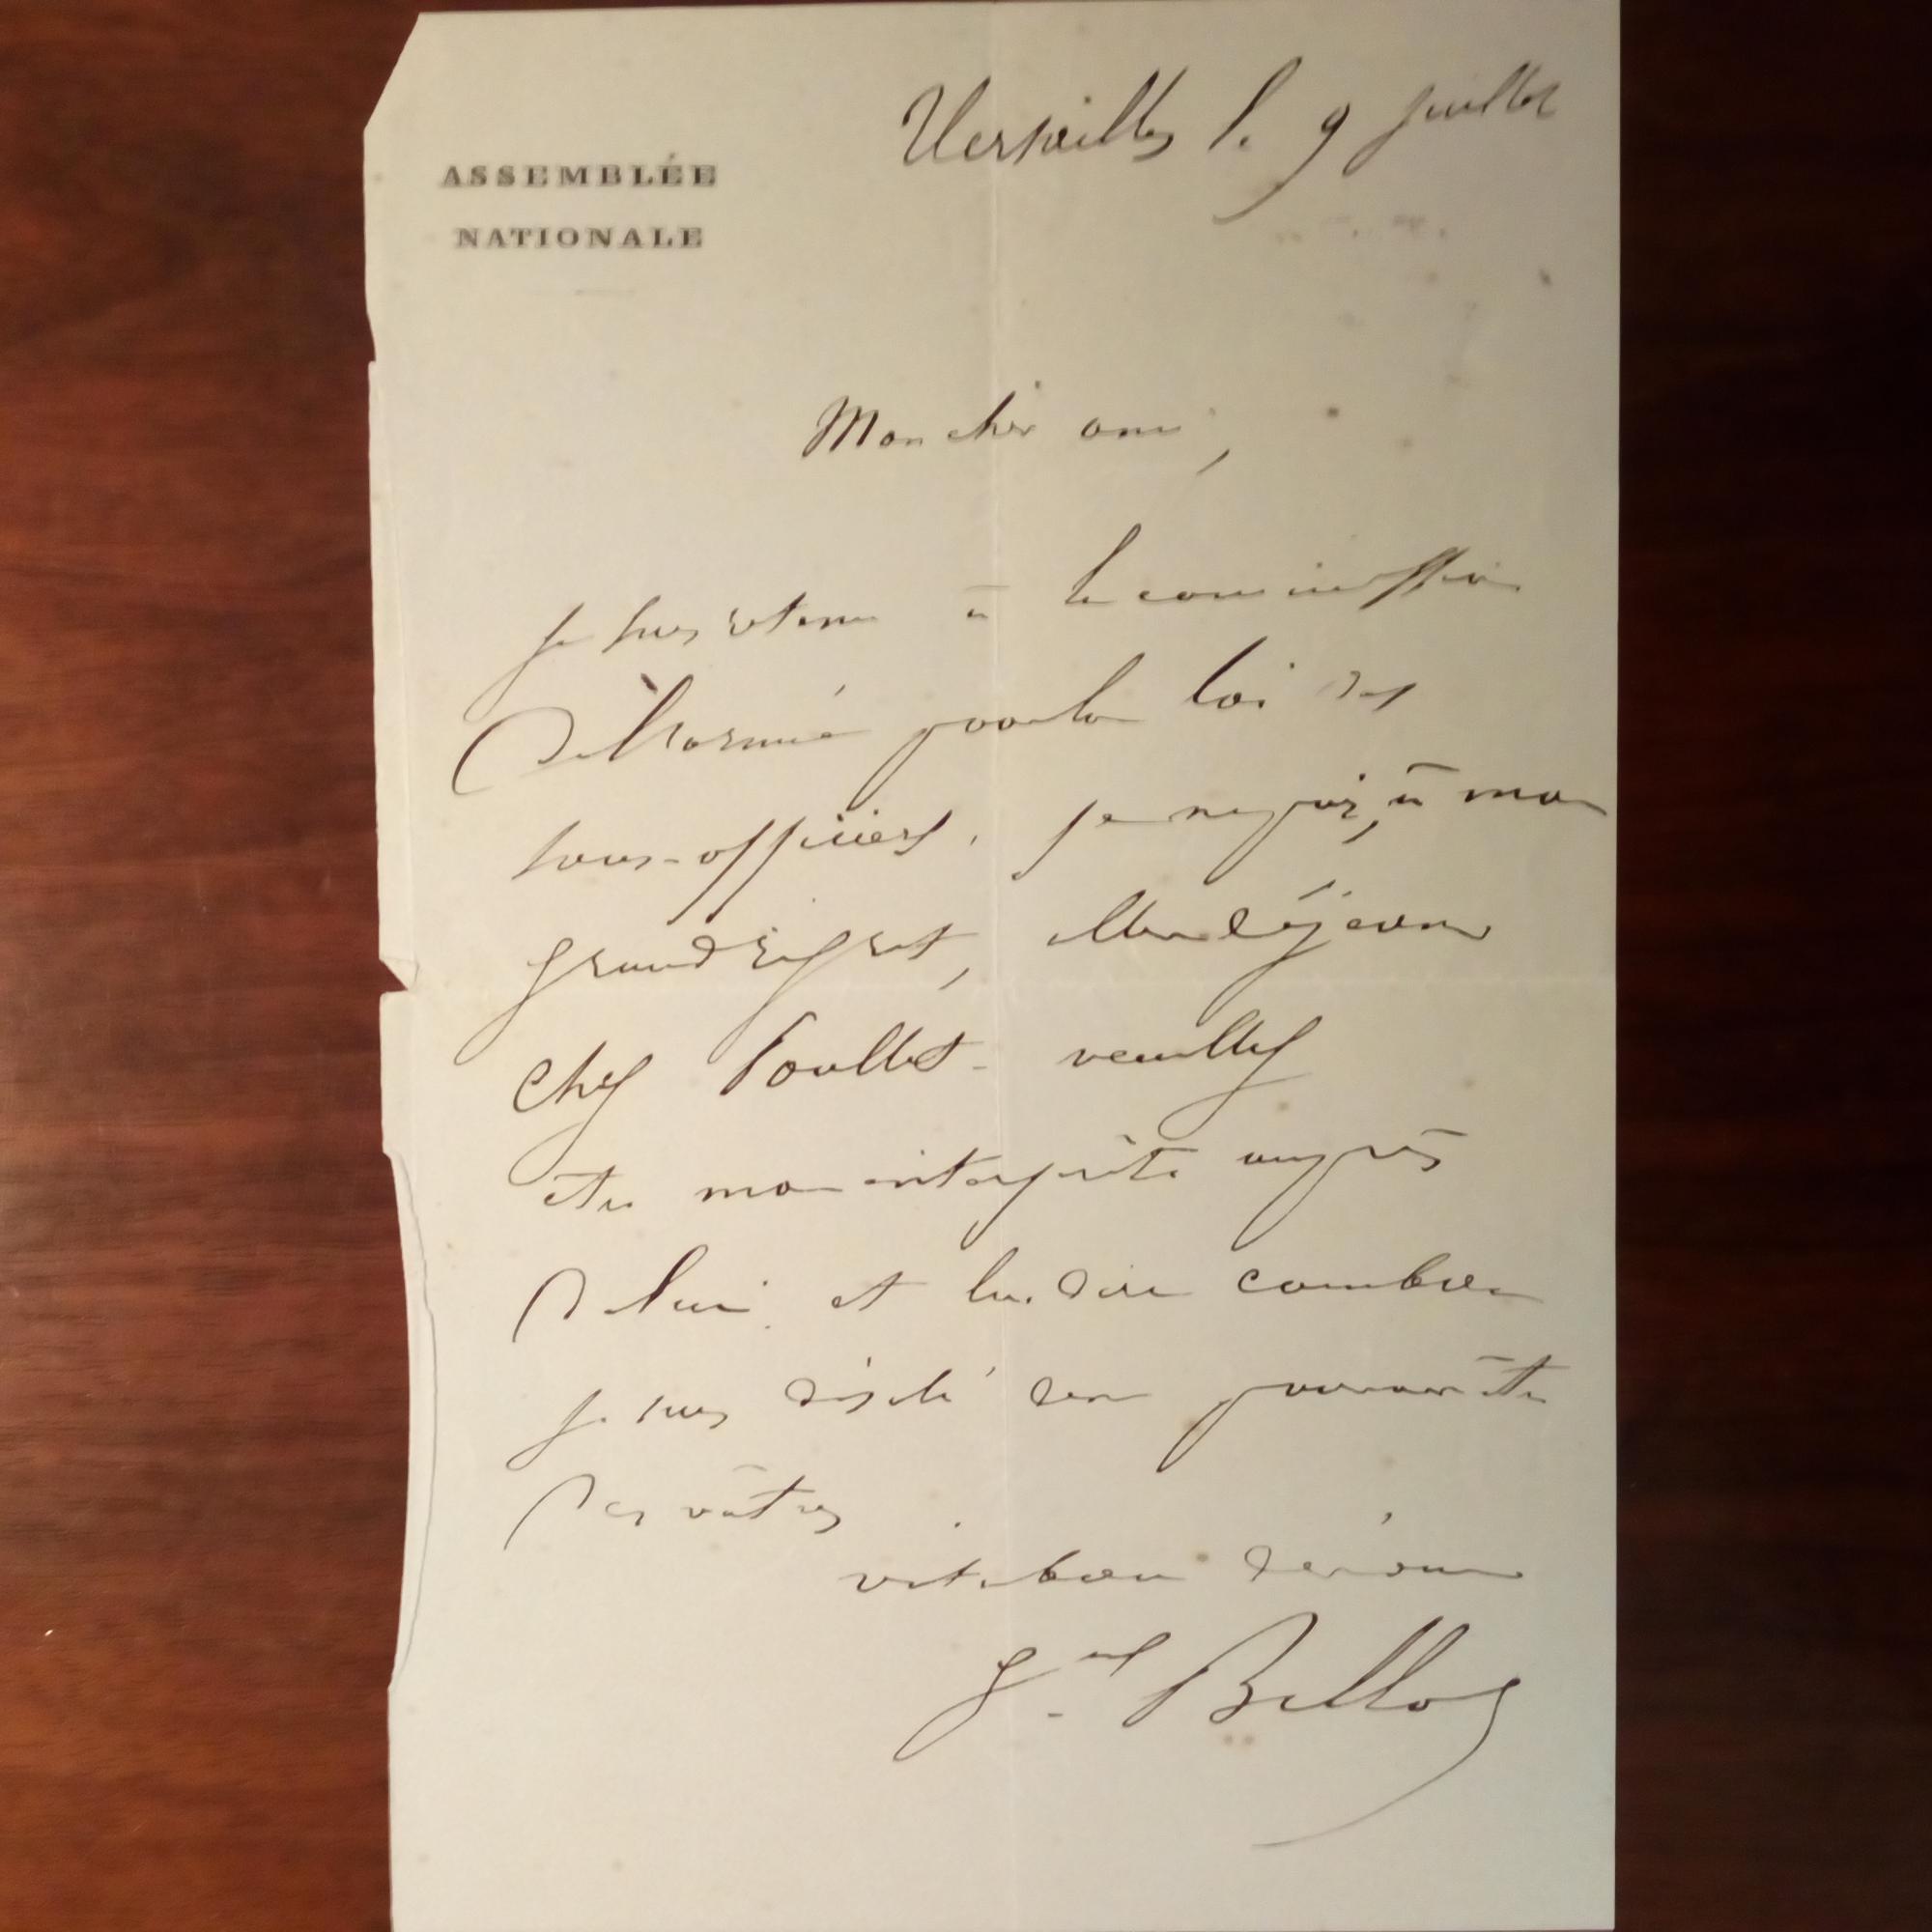 ASSEMBLÉE
NATIONALE
Versailles le 9 juillet
Mon cher ami,
Je suis retenu à la commission
de l'armée pour la loi des
sous-officiers. Je ne puis, à mon
grand regret, aller déjeuner
chez Poullet. veuillez
être mon interprète auprès
de lui et lui dire combien
je suis désolé de ne pouvoir être
des vôtres.
votre bien dévoué
Gal Billot